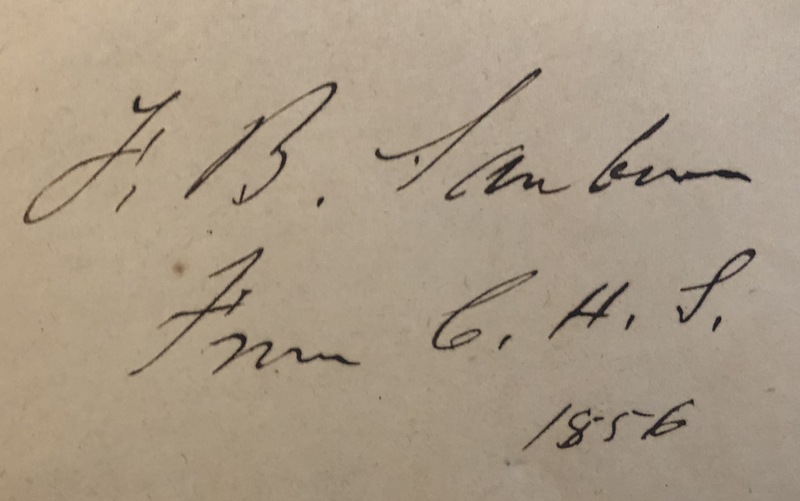 F. B. Sanborn
From C. H. S.
1856